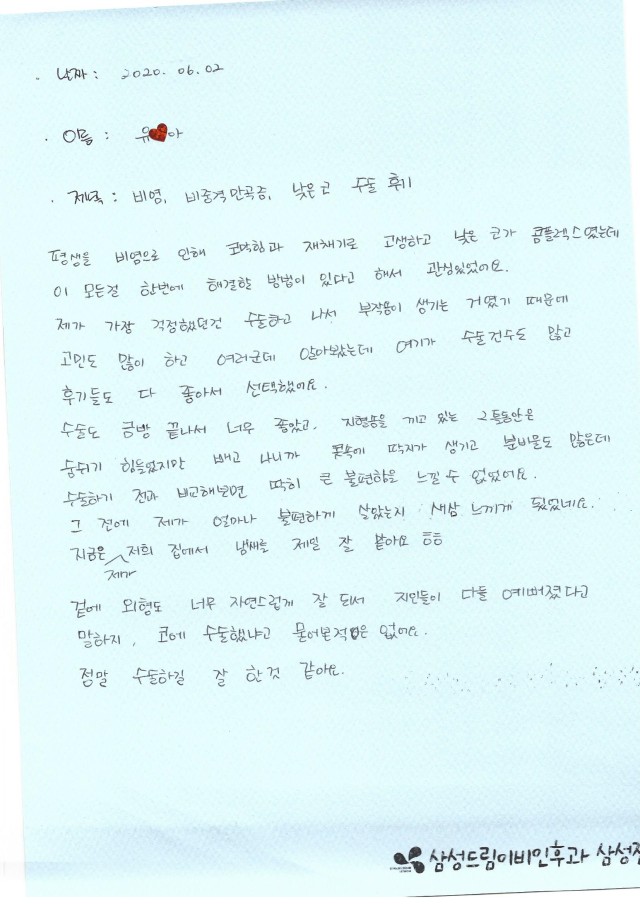 · 날짜 : 2020. 06. 02
· 이름 : 유❤아
· 제목 : 비염, 비중격만곡증, 낮은 코 수술 후기
평생을 비염으로 인해 코막힘과 재채기로 고생하고 낮은 코가 콤플렉스였는데
이 모든걸 한번에 해결할 방법이 있다고 해서 관심있었어요.
제가 가장 걱정했던건 수술하고 나서 부작용이 생기는 거였기 때문에
고민도 많이 하고 여러군데 알아봤는데 여기가 수술건수도 많고
후기들도 다 좋아서 선택했어요.
수술도 금방 끝나서 너무 좋았고, 지혈솜을 끼고 있는 2틀동안은
숨쉬기 힘들었지만 빼고 나니까 콧속에 딱지가 생기고 분비물도 많은데
수술하기 전과 비교해보면 딱히 큰 불편함을 느낄 수 없었어요.
그 전에 제가 얼마나 불편하게 살았는지 새삼 느끼게 됬었네요.
지금은 제가 저희 집에서 냄새를 제일 잘 맡아요 ㅎㅎ
겉에 외형도 너무 자연스럽게 잘 되서 지인들이 다들 예뻐졌다고
말하지, 코에 수술했냐고 물어본적은 없어요.
정말 수술하길 잘 한것 같아요.
삼성드림이비인후과 삼성